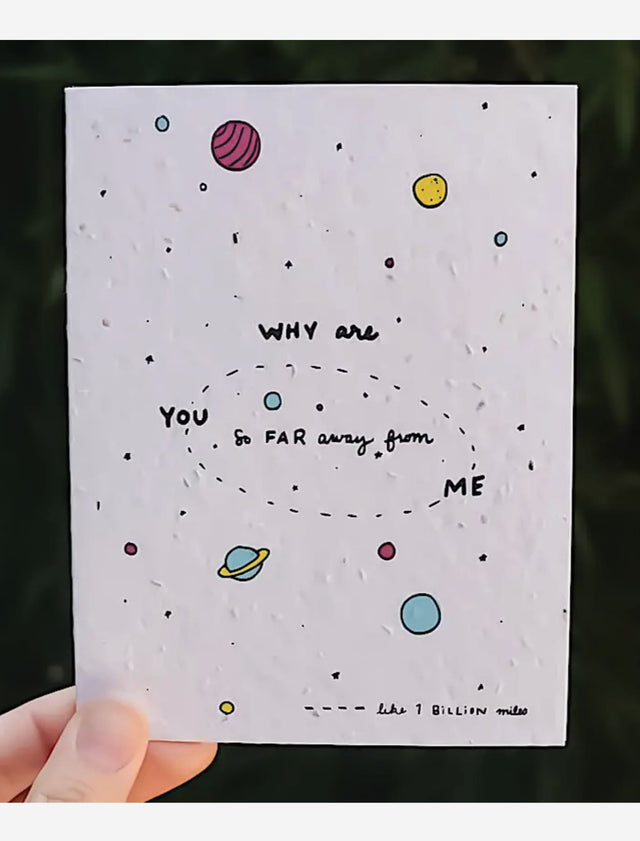 WHY are
YOU
So FAR away from
ME
---- like 1 BiLLiON miles